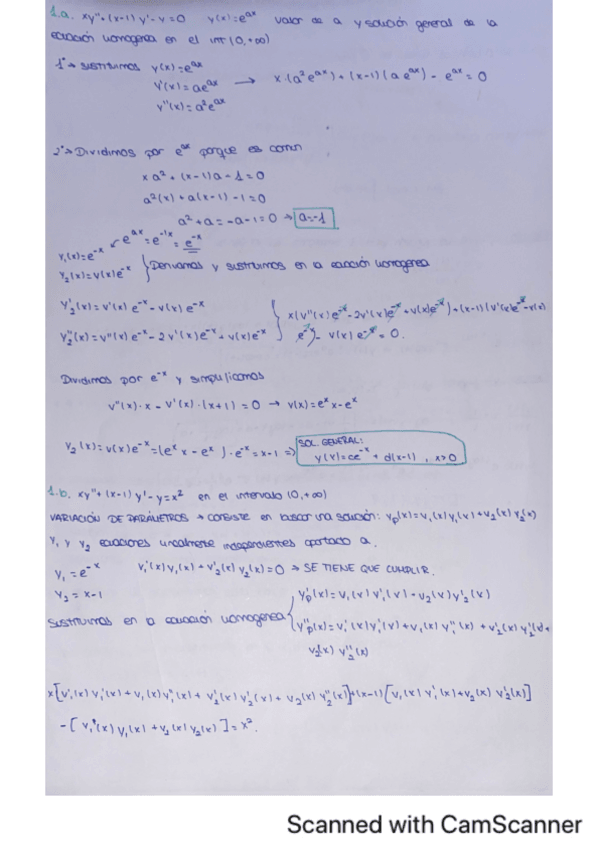 1.a. xy''+(x-1)y'-y=0 y(x)=e^ax valor de a y solución general de la
ecuación homogenea en el int (0,+∞)
1º→ sustituimos y(x)=e^ax
y'(x)=ae^ax → x·(a²e^ax)+(x-1)(ae^ax)-e^ax=0
y''(x)=a²e^ax
2º→ Dividimos por e^ax porque es comun
xa²+(x-1)a-1=0
a²(x)+a(x-1)-1=0
a²+a=-a-1=0 → a=-1
y₁(x)=e^-x e^ax=e^-1x=e^-x
y₂(x)=v(x)e^-x } Derivamos y sustituimos en la ecuación homogenea
y₂'(x)=v'(x)e^-x-v(x)e^-x
x(v''(x)e^-x-2v'(x)e^-x+v(x)e^-x)+(x-1)(v'(x)e^-x-v(x)
y₂''(x)=v''(x)e^-x-2v'(x)e^-x+v(x)e^-x
e^-x)-v(x)e^-x=0.
Dividimos por e^-x y simplificamos
v''(x)·x-v'(x)·(x+1)=0 → v(x)=e^x x-e^x
y₂(x)=v(x)e^-x=(e^x x-e^x)·e^-x=x-1 ⇒ SOL. GENERAL:
y(x)=ce^-x+d(x-1), x>0
1.b. xy''+(x-1)y'-y=x² en el intervalo (0,+∞)
VARIACIÓN DE PARÁMETROS → CONSISTE en buscar una solución: yp(x)=v₁(x)y₁(x)+v₂(x)y₂(x)
y₁ y y₂ ecuaciones linealmente independientes apartado a.
y₁=e^-x v₁'(x)y₁(x)+v₂'(x)y₂(x)=0 → SE TIENE QUE CUMPLIR.
y₂=x-1
yp'(x)=v₁(x)y₁'(x)+v₂(x)y₂'(x)
Sustituimos en la ecuación homogenea
yp''(x)=v₁'(x)y₁'(x)+v₁(x)y₁''(x)+v₂'(x)y₂'(x)+
v₂(x)y₂''(x)
x[v₁'(x)y₁'(x)+v₁(x)y₁''(x)+v₂'(x)y₂'(x)+v₂(x)y₂''(x)]+(x-1)[v₁(x)y₁'(x)+v₂(x)y₂'(x)]
-[v₁(x)y₁(x)+v₂(x)y₂(x)]=x².
Scanned with CamScanner